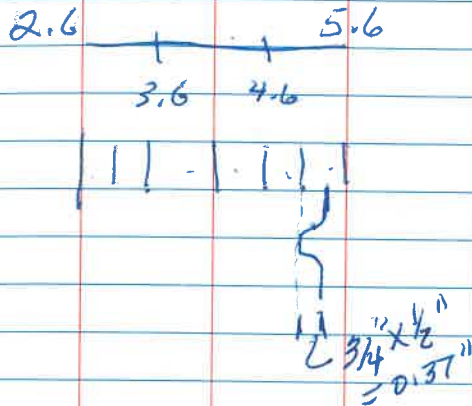 2.6 5.6
3.6 4.6
3/4" x 1/2"
= 0.37"